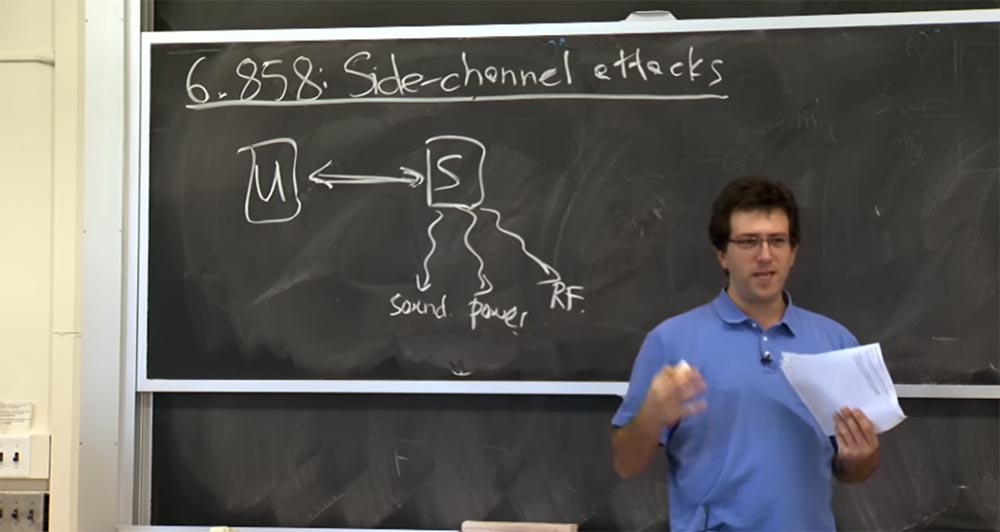 6.858: Side-channel attacks
U S
sound. power RF.